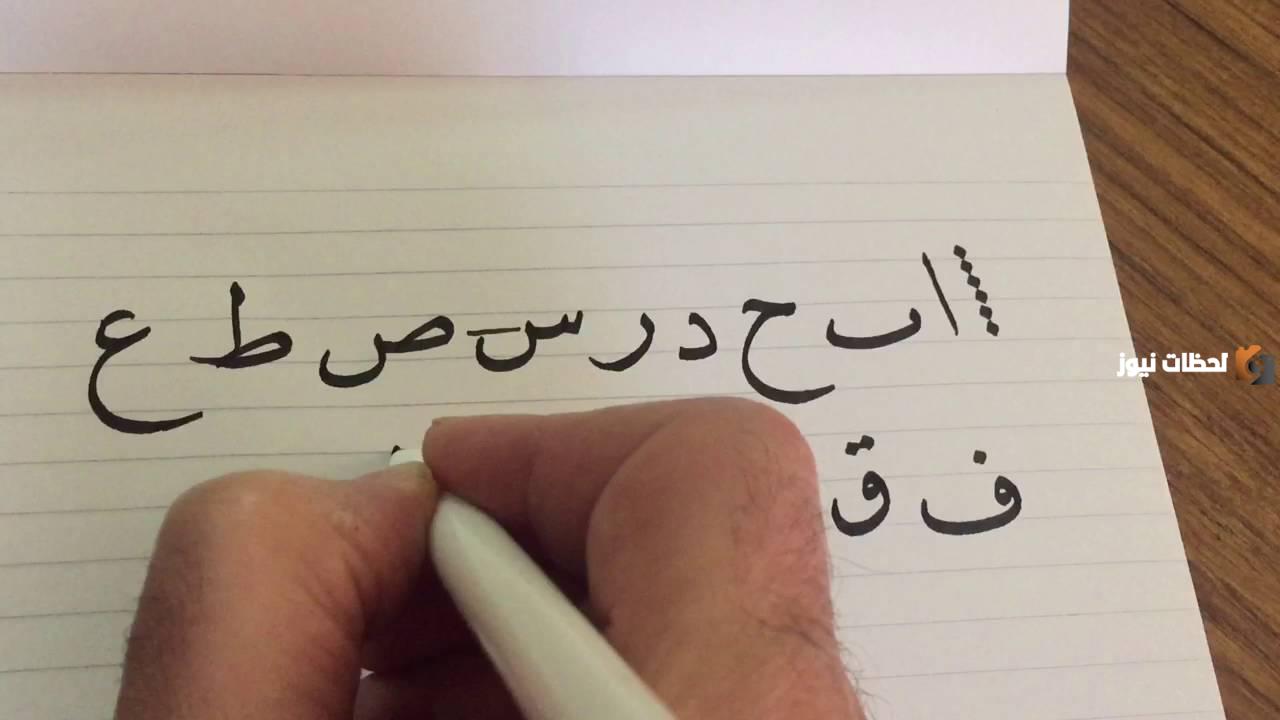 ا ٮ ح د ر س ص ط ع
ف ق
لحظات نيوز